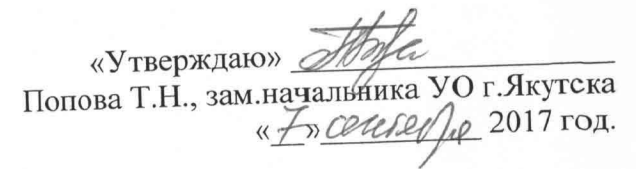 «Утверждаю»
Попова Т.Н., зам.начальника УО г.Якутска
«7» сентября 2017 год.